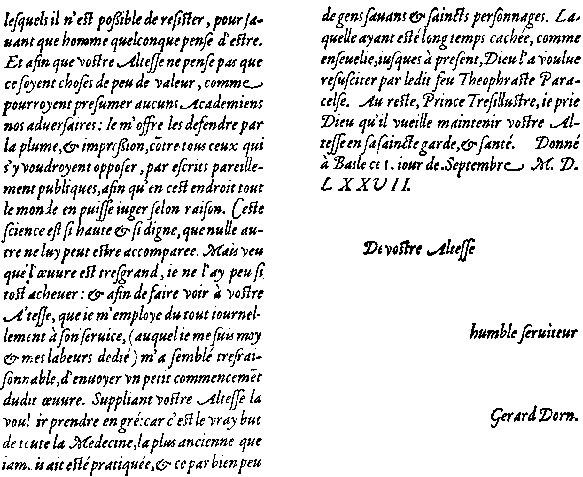 lesquels il n'est possible de resister, pour sa-
uant que homme quelconque pense d'estre.
Et afin que vostre Altesse ne pense pas que
ce soyent choses de peu de valeur, comme
pourroyent presumer aucuns Academiens
nos aduersaires: Ie m'offre les defendre par
la plume, & impression, cōtre tous ceux qui
s'y voudroyent opposer, par escrits pareille-
ment publiques, afin qu'en cest endroit tout
le monde en puisse iuger selon raison. Ceste
science est si haute & si digne, que nulle au-
tre ne luy peut estre accomparee. Mais veu
que l'œuure est tresgrand, ie ne l'ay peu si
tost acheuer: & afin de faire voir à vostre
Altesse, que ie m'employe du tout iournel-
lement à son seruice, (auquel ie me suis moy
& mes labeurs dedié) m'a semblé tresrai-
sonnable, d'enuoyer vn petit commencemēt
dudit œuure. Suppliant vostre Altesse la
vouloir prendre en gré: car c'est le vray but
de toute la Medecine, la plus ancienne que
iamais ait esté pratiquée, & ce par bien peu
de gens sauans & saincts personnages. La-
quelle ayant esté long temps cachée, comme
enseuelie, iusques à present, Dieu l'a voulue
resusciter par ledit feu Theophraste Para-
celse. Au reste, Prince Tresillustre, ie prie
Dieu qu'il vueille maintenir vostre Al-
tesse en sa saincte garde, & santé. Donné
à Basle ce 1. iour de Septembre M. D.
LXXVII.
De vostre Altesse
humble seruiteur
Gerard Dorn.